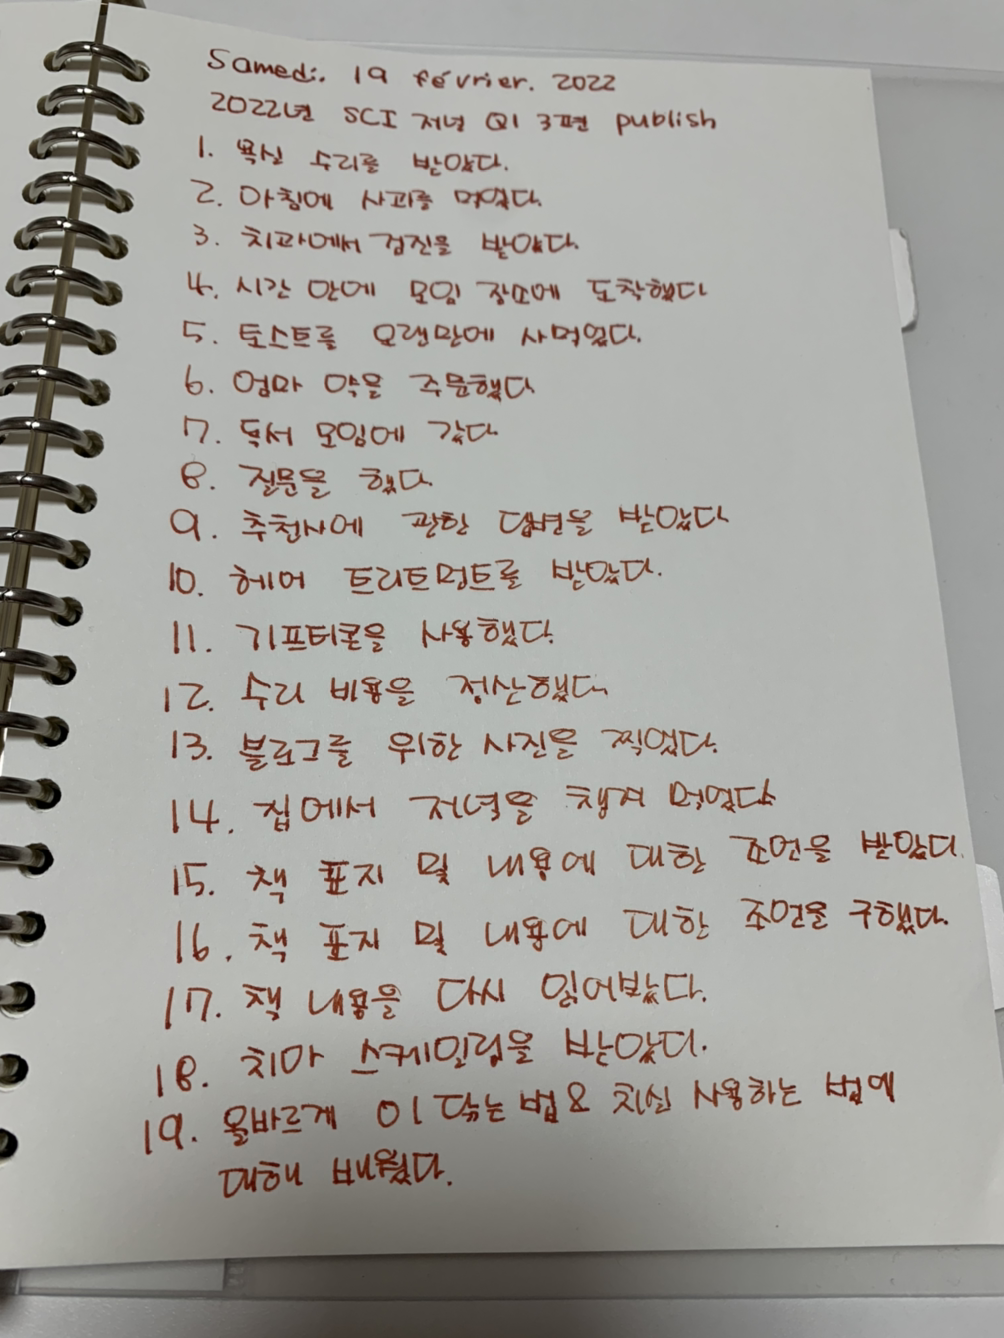 Samedi. 19 février. 2022
2022년 SCI 저널 Q1 3편 publish
1. 욕실 수리를 받았다.
2. 아침에 사과를 먹었다.
3. 치과에서 검진을 받았다.
4. 시간 안에 모임 장소에 도착했다
5. 토스트를 오랜만에 사먹었다.
6. 엄마 약을 주문했다
7. 독서 모임에 갔다
8. 질문을 했다.
9. 추천사에 관한 답변을 받았다
10. 헤어 트리트먼트를 받았다.
11. 기프티콘을 사용했다.
12. 수리 비용을 정산했다.
13. 블로그를 위한 사진을 찍었다.
14. 집에서 저녁을 챙겨 먹었다
15. 책 표지 및 내용에 대한 조언을 받았다.
16. 책 표지 및 내용에 대한 조언을 구했다.
17. 책 내용을 다시 읽어봤다.
18. 치아 스케일링을 받았다.
19. 올바르게 이 닦는 법 & 치실 사용하는 법에
대해 배웠다.